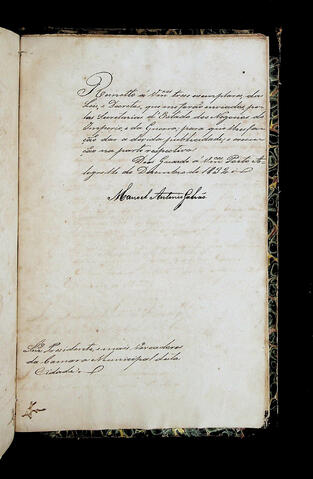 Remetto a Vm.ces tres exemplares, das
Leis, e Decretos, que me forão enviados pe-
las Secretarias d'Estado dos Negocios do
Imperio, e da Guerra; para que lhes fa-
ção dar a devida publicidade, e execu-
ção na parte respectiva.
Deos Guarde a Vm.ces Porto A-
legre de Dezembro de 1832
Manoel Antonio Galvão
Snr.es Presidente, e mais Vereadores
da Camara Municipal desta
Cidade.